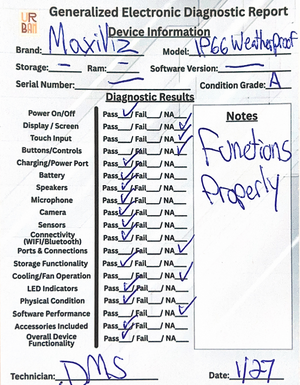 UR
BAN
Generalized Electronic Diagnostic Report
Device Information
Brand: Maxiviz Model: IP66 Weatherproof
Storage: — Ram: — Software Version: —
Serial Number: — Condition Grade: A
Diagnostic Results
Power On/Off Pass ✓/Fail__/ NA__
Display / Screen Pass__/Fail__/ NA ✓
Touch Input Pass__/Fail__/ NA ✓
Buttons/Controls Pass ✓/Fail__/ NA ✓
Charging/Power Port Pass ✓/Fail__/ NA__
Battery Pass ✓/Fail__/ NA__
Speakers Pass ✓/Fail__/ NA__
Microphone Pass ✓/Fail__/ NA__
Camera Pass ✓/Fail__/ NA__
Sensors Pass ✓/Fail__/ NA__
Connectivity
(WIFI/Bluetooth) Pass ✓/Fail__/ NA__
Ports & Connections Pass__/Fail__/ NA ✓
Storage Functionality Pass ✓/Fail__/ NA__
Cooling/Fan Operation Pass__/Fail__/ NA ✓
LED Indicators Pass ✓/Fail__/ NA__
Physical Condition Pass ✓/Fail__/ NA__
Software Performance Pass__/Fail__/ NA ✓
Accessories Included Pass ✓/Fail__/ NA__
Overall Device
Functionality Pass ✓/Fail__/ NA__
Notes
Functions
Properly
Technician: DMS Date: 1/27